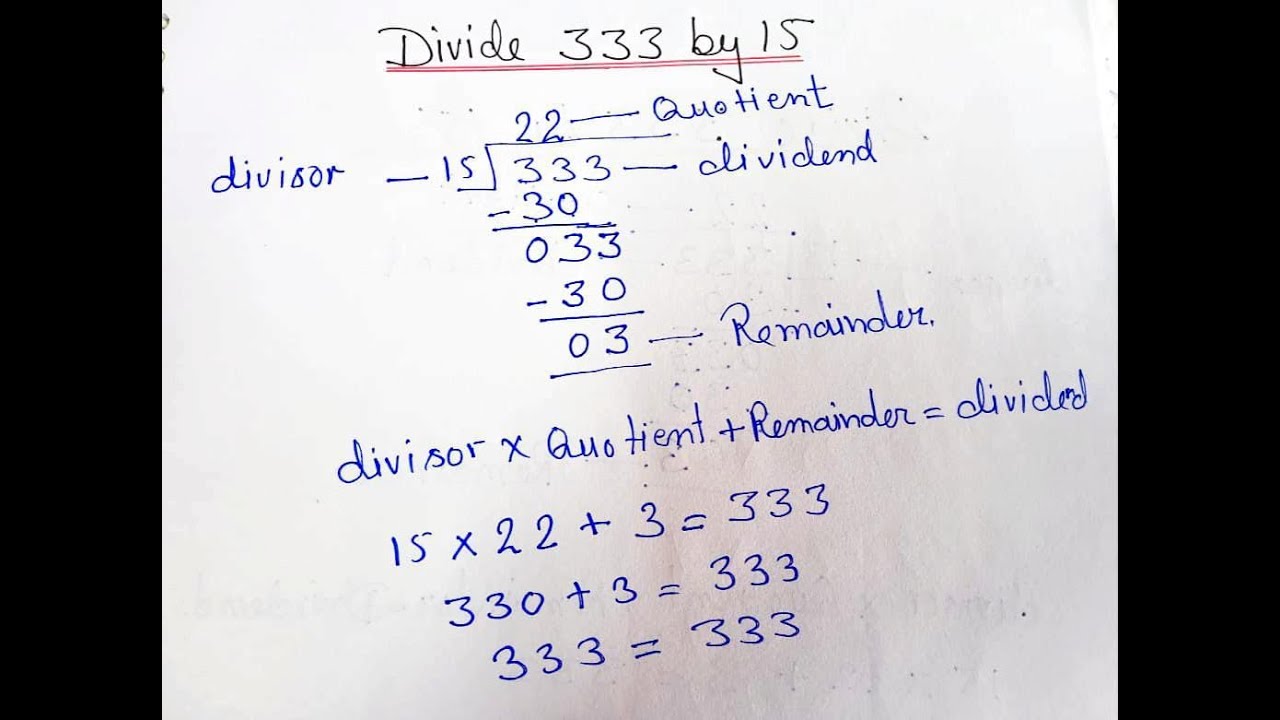 Divide 333 by 15
22 — Quotient
divisor — 15) 333 — dividend
- 30
033
- 30
03 — Remainder.
divisor × Quotient + Remainder = divided
15 × 22 + 3 = 333
330 + 3 = 333
333 = 333